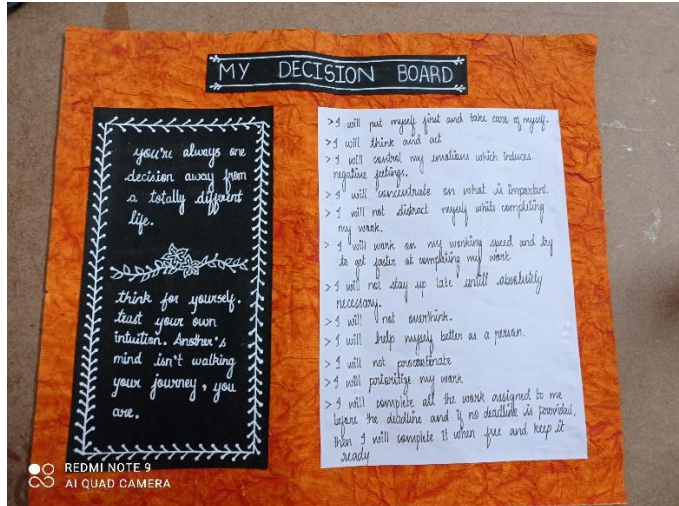 MY DECISION BOARD
you're always one
decision away from
a totally different
life.
think for yourself.
trust your own
intuition. Another's
mind isn't walking
your journey, you
are.
> I will put myself first and take care of myself.
> I will think and act
> I will control my emotions which induces
negative feelings.
> I will concentrate on what is important.
> I will not distract myself while completing
my work.
> I will work on my working speed and try
to get faster at completing my work
> I will not stay up late untill absolutely
necessary.
> I will not overthink.
> I will help myself better as a person.
> I will not procastinate
> I will prioritize my work
> I will complete all the work assigned to me
before the deadline and if no deadline is provided,
then I will complete it when free and keep it
ready
REDMI NOTE 9
AI QUAD CAMERA